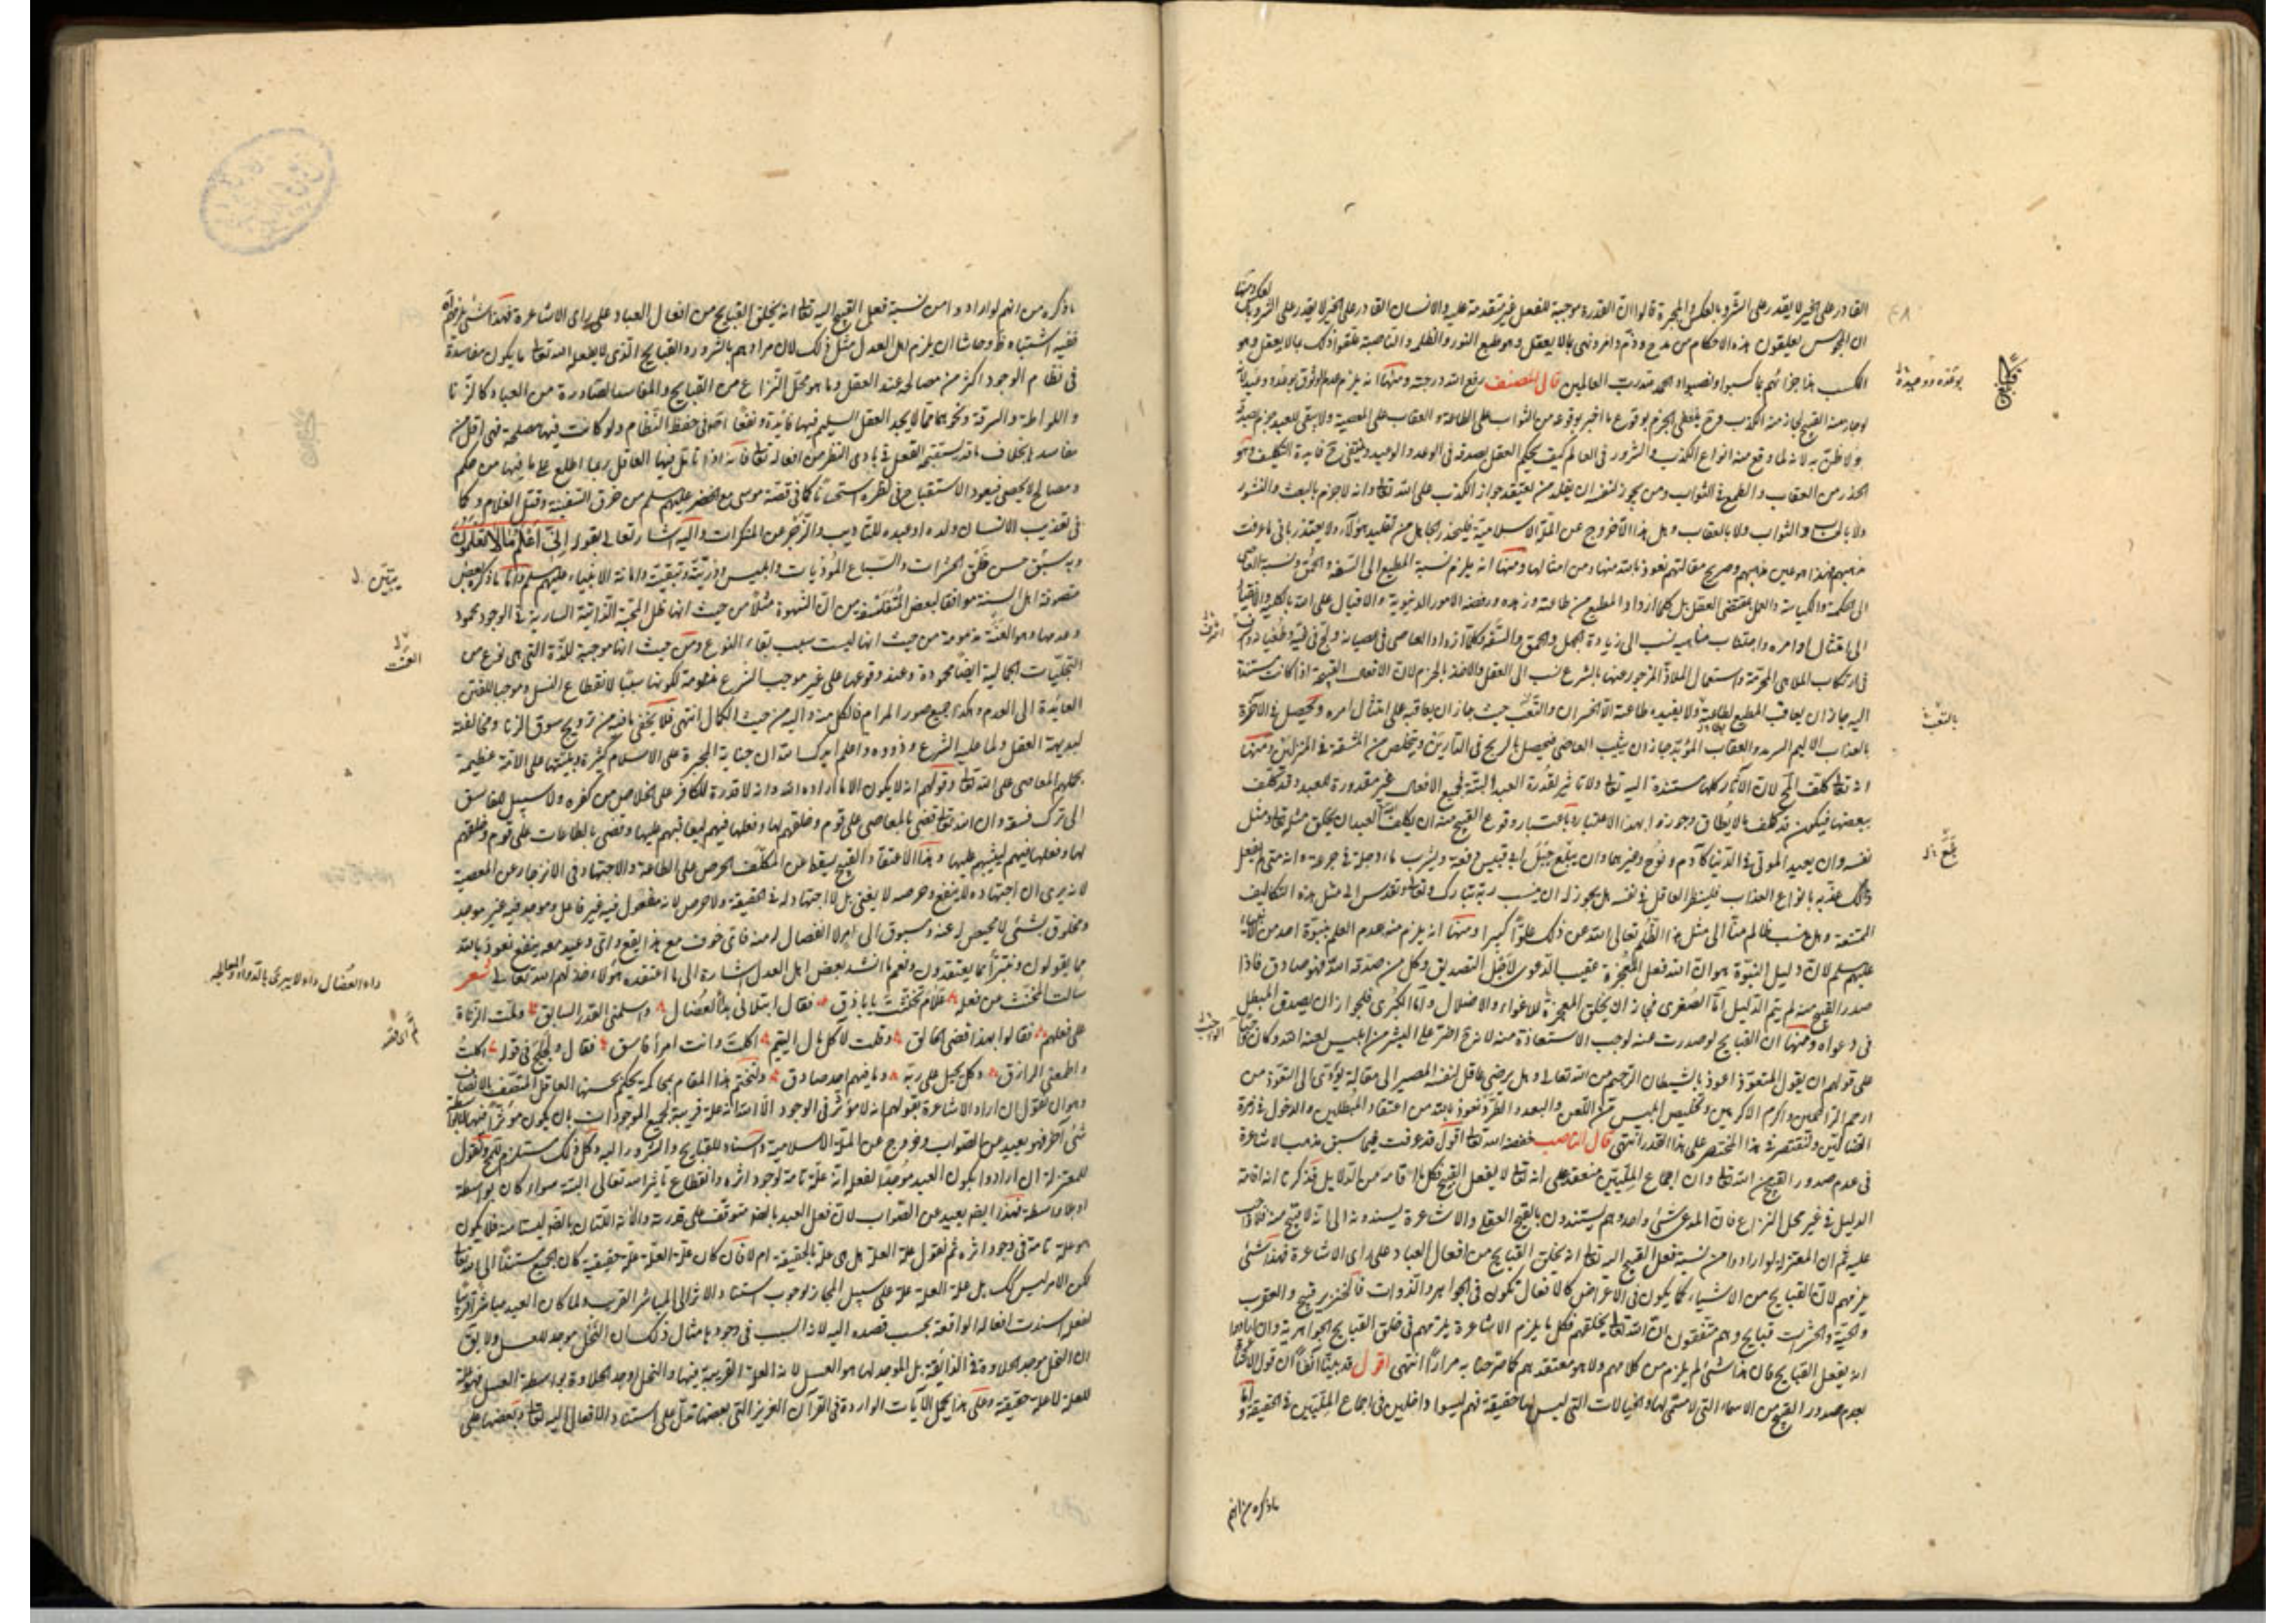 القادر على الخير لا يقدر على الشر وبالعكس والمجبرة قالوا ان القدرة موجبة للفعل غير متقدمة عليه والانسان القادر على الخير لا يقدر على الشر وبالعكس ومنها
ان المجوس يعلقون هذه الاحكام من مدح وذم وامر ونهى بما لا يعقل وهو طبع النور والظلمة والناصبة علقوا ذلك بما لا يعقل وهو
الكسب هذا جزاؤهم بما كسبوا ونصبوا والحمد لله رب العالمين قال المصنف رفع الله درجته ومنها انه يلزم عدم الوثوق بوعده ووعيده لانه
لو جاز منه القبيح لجاز منه الكذب وح ينتفى الجزم بوقوع ما اخبر بوقوعه من الثواب على الطاعة والعقاب على المعصية ولا يبقى للعبد جزم بصدقه
بل ولا ظن به لانه لما وقع منه انواع الكذب والشرور في العالم كيف يحكم العقل بصدقه في الوعد والوعيد وينتفى ح فايدة التكليف وهو
الحذر من العقاب والطمع في الثواب ومن يجوز لنفسه ان يقلد من يعتقد جواز الكذب على الله تعالى وانه لا جزم بالبعث والنشور
ولا بالحساب والثواب ولا بالعقاب وهل هذا الا خروج عن الملة الاسلامية فليحذر الجاهل من تقليد هؤلاء ولا يعتذر بانى ما عرفت
مذهبهم فهذا هو عين مذهبهم وصريح مقالتهم نعوذ بالله منها ومن امثالها ومنها انه يلزم نسبة المطيع الى السفه والحمق ونسبة العاصى
الى الحكمة والكياسة والعمل بمقتضى العقل بل كلما ازداد المطيع من طاعته وزهده ورفضه الامور الدنيوية والاقبال على الله بالكلية والانقياد
الى امتثال اوامره واجتناب مناهيه نسب الى زيادة الجهل والحمق والسفه وكلما ازداد العاصى في عصيانه ولج في غيه وطغيانه واسرف
في ارتكاب الملاهى المحرمة واستعمال الملاذ المزجور عنها بالشرع نسب الى العقل والاخذ بالحزم لان الافعال القبيحة اذا كانت مستندة
اليه جاز ان يعاقب المطيع لطاعته ولا يفيده طاعته الا الخسران والتعب حيث جاز ان يعاقبه على امتثال امره ويحصل في الآخرة
بالعذاب الاليم السرمد والعقاب المؤبد وجاز ان يثيب العاصى فيحصل بالربح في الدارين ويتخلص من المشقة في المنزلين ومنها
انه تعالى كلف المحال لان الآثار كلها مستندة اليه تعالى ولا تاثير لقدرة العبد البتة فجميع الافعال غير مقدورة للعبد وقد كلف
ببعضها فيكون قد كلف ما لا يطاق وجوزوا بهذا الاعتبار وباعتبار وقوع القبيح منه ان يكلف الله العبد ان يخلق مثله تعالى ومثل
نفسه وان يعيد الموتى في الدنيا كآدم ونوح وغيرهما وان يبلع جبل ابى قبيس دفعة ويشرب ماء دجلة في جرعة وانه متى لم يفعل
ذلك عذبه بانواع العذاب فلينظر العاقل في نفسه هل يجوز له ان ينسب ربه تبارك وتعالى وتقدس الى مثل هذه التكاليف
الممتنعة وهل ينسب ظالم منا الى مثل هذا الظلم تعالى الله عن ذلك علوا كبيرا ومنها انه يلزم منه عدم العلم بنبوة احد من الانبياء
عليهم سلم لان دليل النبوة هو ان الله فعل المعجزة عقيب الدعوى لاجل التصديق وكل من صدقه الله فهو صادق فاذا
صدر القبيح منه لم يتم الدليل اما الصغرى فجاز ان يخلق المعجزة للاغواء والاضلال واما الكبرى فلجواز ان يصدق المبطل
في دعواه ومنها ان القبايح لو صدرت عنه لوجب الاستعاذة منه لانه ح اضر على البشر من ابليس لعنه الله وكان واجبا
على قولهم ان يقول المتعوذ اعوذ بالشيطان الرجيم من الله تعالى وهل يرضى عاقل لنفسه المصير الى مقالة يؤدى الى التعوذ من
ارحم الراحمين واكرم الاكرمين وتخليص ابليس من اللعن والبعد والطرد نعوذ بالله من اعتقاد المبطلين والدخول في زمرة
الضالين ولنقتصر في هذا المختصر على هذا القدر انتهى قال الناصب خفضه الله تعالى اقول قد عرفت فيما سبق مذهب الاشاعرة
في عدم صدور القبيح من الله تعالى وان اجماع المليين منعقد على انه تعالى لا يفعل القبيح فكل ما اقامه من الدلايل قد ذكرنا انه اقامة
الدليل في غير محل النزاع فان المدعى شئ واحد وهم يسندون بالقبح العقلى والاشاعرة يسندونه الى انه لا قبيح منه فلا واجب
عليه ثم ان المعتزلة لو ارادوا من نسبة فعل القبيح اليه تعالى انه يخلق القبايح من افعال العباد على راى الاشاعرة فهذا شئ
يلزمهم لان القبايح من الاشياء كما يكون في الاعراض كالافعال تكون في الجواهر والذوات فالخنزير قبيح والعقرب
والحية والحشرات قبايح وهم متفقون ان الله تعالى يخلقهم فكل ما يلزم الاشاعرة يلزمهم في خلق القبايح الجوهرية وان ارادوا
انه يفعل القبايح فان هذا شئ لم يلزم من كلامهم ولا هو معتقدهم كما صرحنا به مرارا انتهى اقول قد بينا آنفا ان قول الاشاعرة
بعدم صدور القبيح من الاسماء التى لا مسمى لها والخيالات التى ليس لها حقيقة فهم ليسوا داخلين في اجماع المليين في الحقيقة واما
ما ذكره من انهم
بوعده ووعيده
بالتعب
يبلع
ما ذكره من انهم لو ارادوا من نسبة فعل القبيح اليه تعالى انه يخلق القبايح من افعال العباد على راى الاشاعرة فهذا شئ يلزمهم
ففيه اشتباه ظ وحاشا ان يلزم اهل العدل مثل ذلك لان مرادهم بالشرور والقبايح الذى لا يفعله الله تعالى ما يكون مفاسده
في نظام الوجود اكثر من مصالحه عند العقل وما هو محل النزاع من القبايح والمفاسد الصادرة من العباد كالزنا
واللواطة والسرقة ونحوها مما لا يجد العقل السليم فيها فايدة ونفعا اصلا في حفظ النظام ولو كانت فيها مصلحة فهى اقل من
مفاسدها بخلاف ما قد يستقبحه العقل في بادى النظر من افعاله تعالى فانه اذا تامل فيها العاقل ربما اطلع على ما فيها من حكم
ومصالح لا تحصى فيعود الاستقباح في نظره استحسانا كما في قصة موسى مع الخضر عليهم سلم من خرق السفينة وقتل الغلام وكما
في تعذيب الانسان ولده او عبده للتاديب والزجر عن المنكرات واليه اشار تعالى بقوله انى اعلم ما لا تعلمون
وبه يتبين حسن خلق الحشرات والسباع الموذيات وابليس وذريته وتبقيته واماتة الانبياء عليهم سلم واما ما ذكره بعض
متصوفة اهل السنة موافقا لبعض المتفلسفة من ان الشهوة مثلا من حيث انها ظل المحبة الذاتية السارية في الوجود محمود
وعدمها وهو العنة مذمومة من حيث انها ليست سبب بقاء النوع ومن حيث انها موجبة للذة التى هى نوع من
التجليات الجمالية ايضا محمودة وعند وقوعها على غير موجب الشرع مذمومة لكونها سببا لانقطاع النسل وموجبا للفتن
العائدة الى العدم وهكذا جميع صور المرام فالكل منه واليه من حيث الكمال انتهى فلا يخفى ما فيه من ترويج سوق الزنا ومخالفة
لبديهة العقل ولما عليه الشرع وذووه واعلم ايدك الله ان جناية المجبرة على الاسلام كثيرة وبليتها على الامة عظيمة
بحملهم المعاصى على الله تعالى وقولهم انه لا يكون الا ما اراده الله وانه لا قدرة للكافر على الخلاص من كفره ولا سبيل للفاسق
الى ترك فسقه وان الله تعالى قضى بالمعاصى على قوم وخلقهم لها وفعلها فيهم ليعاقبهم عليها وقضى بالطاعات على قوم وخلقهم
لها وفعلها فيهم ليثيبهم عليها وهذا الاعتقاد القبيح يسقط عن المكلف الحرص على الطاعة والاجتهاد في الانزجار عن المعصية
لانه يرى ان اجتهاده لا ينفع وحرصه لا يغنى بل لا اجتهاد له في الحقيقة ولا حرص لانه مفعول فيه غير فاعل وموجد فيه غير موجد
ومخلوق بشئ لا محيص له عنه ومسوق الى امر لا انفصال له منه فاى خوف مع هذا يقع واى وعيد معه ينفع نعوذ بالله
مما يقولون ونتبرأ مما يعتقدون ونعم ما انشد بعض اهل العدل اشارة الى ما اعتقده هؤلاء خذلهم الله تعالى شعر
سالت المخنث من فعله علام تخنثت يا ماذق فقال ابتلائى بدأ العضال واسلمنى القدر السابق ولمت الزناة
على فعلهم فقالوا بهذا قضى الخالق وقلت لاكل مال اليتيم اكلت وانت امرأ فاسق فقال ولجلج في قوله اكلت
واطعمنى الرازق وكل يحيل على ربه وما فيهم احد صادق ولنختم هذا المقام بمحاكمة يحكم بحسنها العاقل المتصف بالانصاف
وهو ان نقول ان اراد الاشاعرة بقولهم انه لا مؤثر في الوجود الا الله انه علة قريبة لجميع الموجودات بان يكون مؤثرا فيها بلا واسطة
شئ آخر فهو بعيد عن الصواب وخروج عن الملة الاسلامية واسناد للقبايح والشرور اليه وكل ذلك مستلزم للقبح ونقول
للمعتزلة ان ارادوا بكون العبد موجدا لفعله انه علة تامة لوجود اثره وانقطاع تاثير الله تعالى البتة سواء كان بواسطة
او بلا واسطة فهذا ايضا بعيد عن الصواب لان فعل العبد بالضرورة متوقف على قدرته والآلة اللتان بالضرورة ليستا منه فلا يكون
هو علة تامة في وجود اثره ثم نقول علة العلة هل هى علة بالحقيقة ام لا فان كان علة العلة علة حقيقية كان الجميع مستندا الى الله تعالى
لكن الامر ليس كك بل علة العلة علة على سبيل المجاز لوجوب استناد الاثر الى المباشر القريب ولما كان العبد مباشرا قريبا
لفعله اسندت افعاله الواقعة بحسب قصده اليه لانه السبب في وجودها مثال ذلك ان النحل موجد للعسل ولا يق
ان النحل موجد الحلاوة في الذائقة بل الموجد لها هو العسل لانه العلة القريبة فيها والنحل اوجد الحلاوة بواسطة العسل فهو علة
للعلة لا علة حقيقة وعلى هذا يحمل الآيات الواردة في القرآن العزيز التى بعضها تدل على استناد الافعال اليه تعالى وبعضها على
يتبين
داء العضال داء لا يبرئ بالدواء